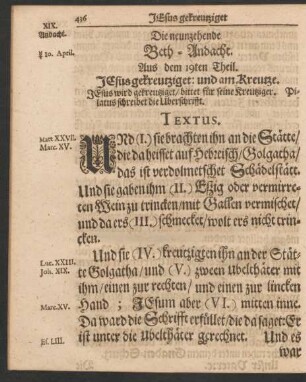 436 JEsus gekreutziget
XIX.
Andacht.
Die neunzehende
Beth-Andacht.
§ 10. April.
Aus dem 19ten Theil.
JEsus gekreutziget: und am Kreutze.
JEsus wird gekreutziget / bittet für seine Kreutziger. Pi-
latus schreibet die Uberschrifft.
TEXTUS.
Matt XXVII.
Marc. XV.
UND (I.) sie brachten ihn an die Stätte/
die da heisset auf Hebreisch/ Golgatha/
das ist verdolmetschet Schädelstätt.
Und sie gaben ihm (II.) Eßig oder vermirre-
ten Wein zu trincken/ mit Gallen vermischet/
und da ers (III.) schmecket/ wolt ers nicht trin-
cken.
Luc. XXIII.
Joh. XIX.
Und sie (IV.) kreutzigten ihn an der Stät-
te Golgatha/ und (V.) zween Ubelthäter mit
ihm/ einen zur rechten/ und einen zur lincken
Marc. XV.
Hand; JEsum aber (VI.) mitten inne.
Da ward die Schrifft erfüllet/ die da saget: Er
Jes. LIII.
ist unter die Ubelthäter gerechnet. Und es
war